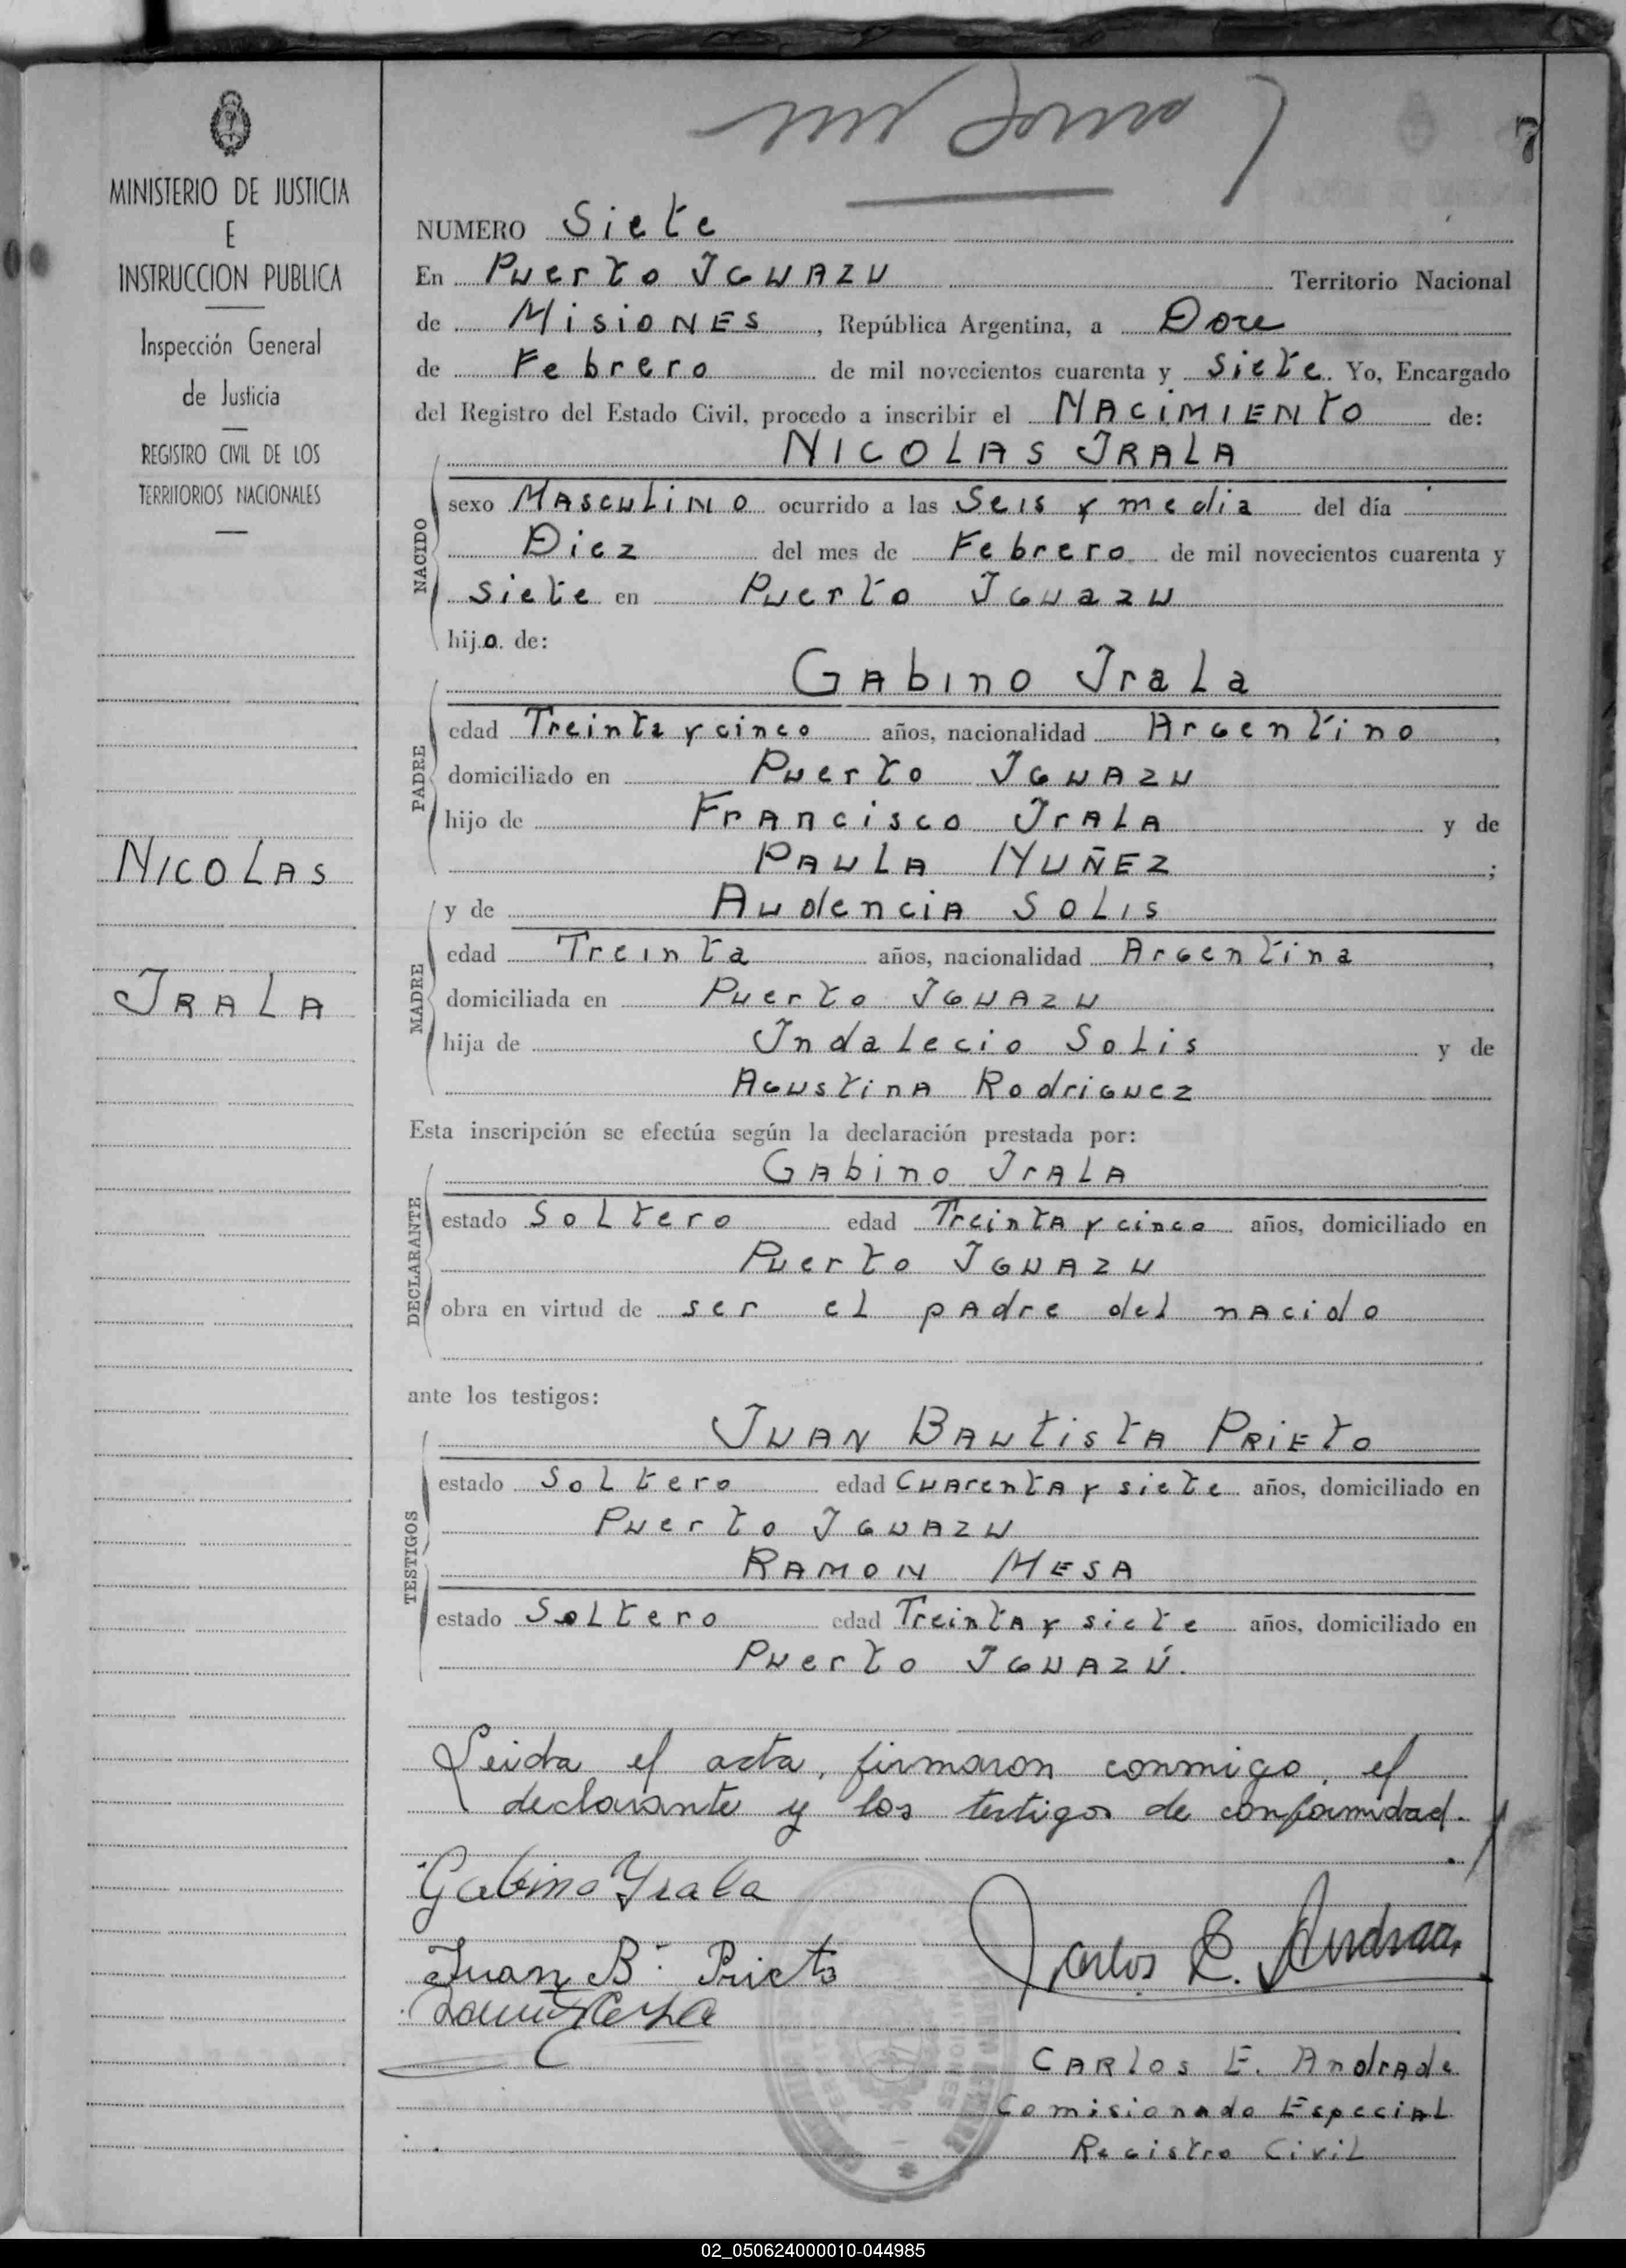 7
MINISTERIO DE JUSTICIA
E
INSTRUCCION PUBLICA
Inspección General
de Justicia
REGISTRO CIVIL DE LOS
TERRITORIOS NACIONALES
NICOLAS
IRALA
NUMERO Siete
En Puerto IGUAZU Territorio Nacional
de MisiONES, República Argentina, a Doce
de Febrero de mil novecientos cuarenta y siete. Yo, Encargado
del Registro del Estado Civil, procedo a inscribir el NACIMIENTO de:
NACIDO
NICOLAS IRALA
sexo MASCULINO ocurrido a las Seis y media del día
Diez del mes de Febrero de mil novecientos cuarenta y
siete en Puerto IGUAZU
hijo de:
PADRE
GABINO IRALA
edad Treinta y cinco años, nacionalidad Argentino,
domiciliado en Puerto IGUAZU
hijo de FRANCISCO IRALA y de
PAULA NUÑEZ;
MADRE
y de AUDENCIA SOLIS
edad Treinta años, nacionalidad Argentina,
domiciliada en Puerto IGUAZU
hija de Indalecio Solis y de
AGUSTINA Rodriguez
Esta inscripción se efectúa según la declaración prestada por:
DECLARANTE
GABINO IRALA
estado Soltero edad Treinta y cinco años, domiciliado en
Puerto IGUAZU
obra en virtud de ser el padre del nacido
ante los testigos:
TESTIGOS
JUAN BAUTISTA PRIETO
estado Soltero edad Cuarenta y siete años, domiciliado en
Puerto IGUAZU
RAMON MESA
estado Soltero edad Treinta y siete años, domiciliado en
Puerto IGUAZÚ.
Leida el acta, firmaron conmigo, el
declarante y los testigos de conformidad.
Gabino Yrala
Juan B. Prieto
Carlos E. Andrade
CARLOS E. Andrade
Comisionado Especial
Registro Civil
02_050624000010-044985